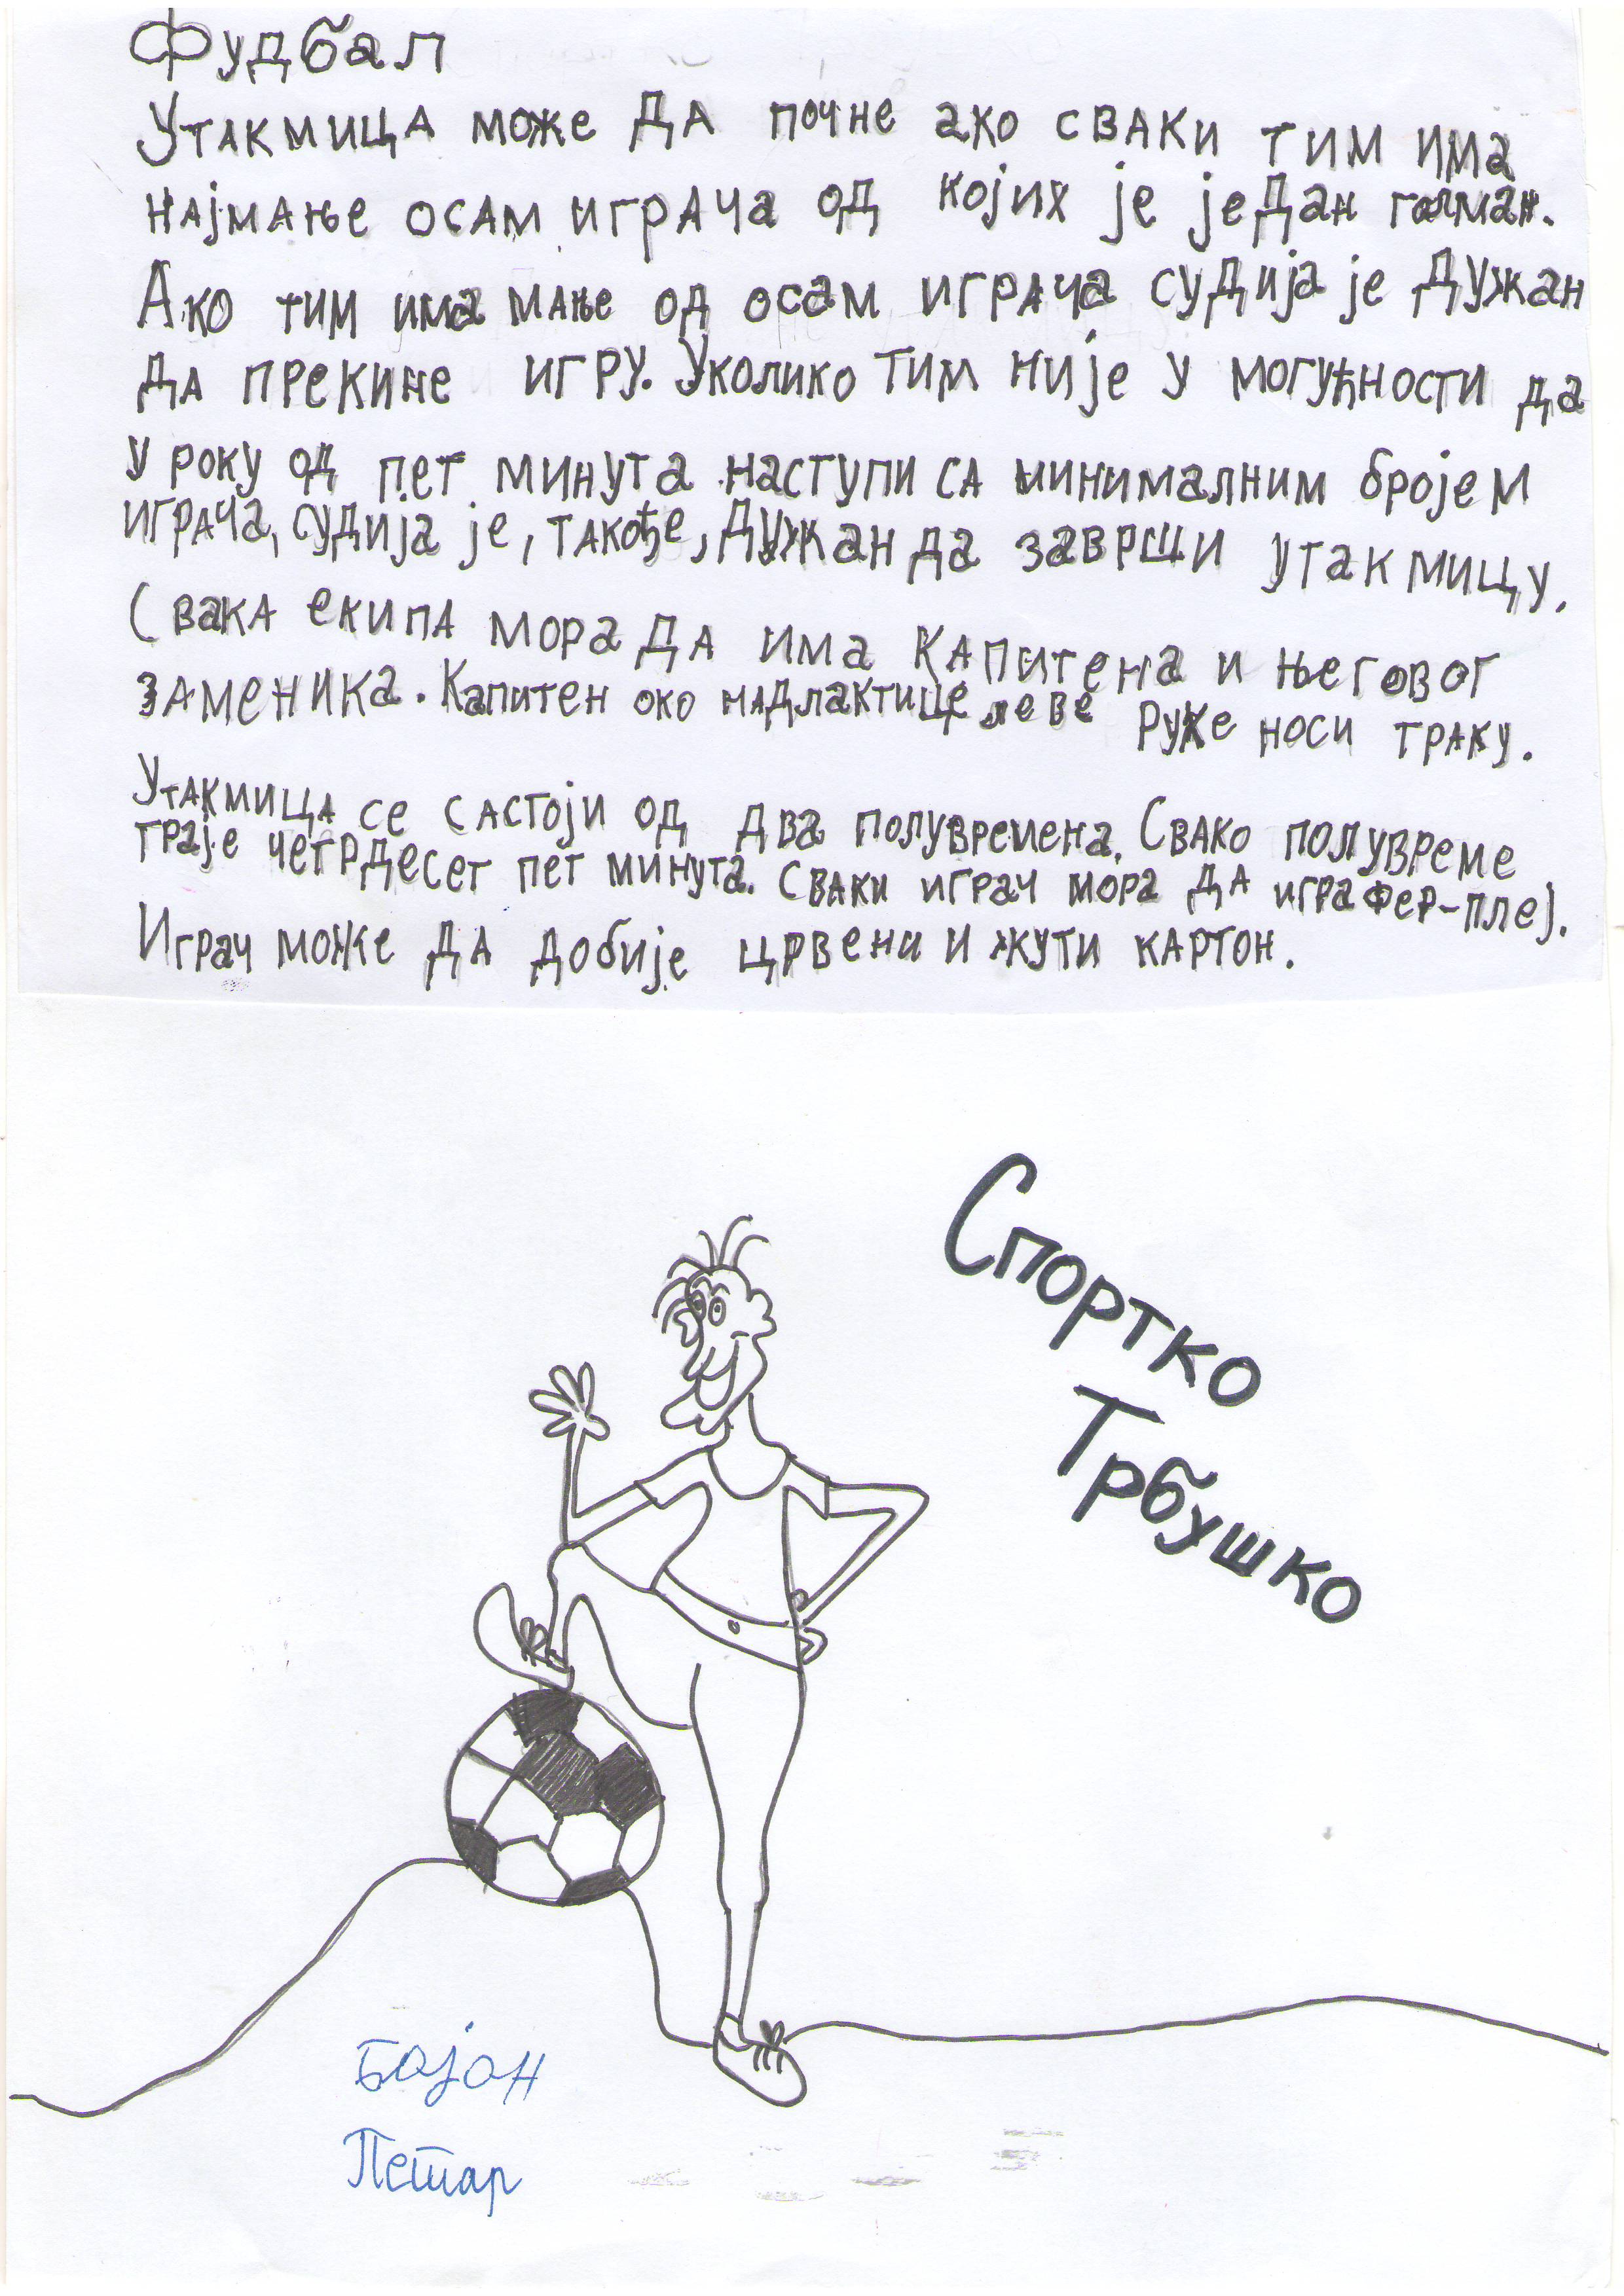 Фудбал
Утакмица може да почне ако сваки тим има
најмање осам играча од којих је један голман.
Ако тим има мање од осам играча судија је дужан
да прекине игру. Уколико тим није у могућности да
у року од пет минута наступи са минималним бројем
играча, судија је, такође, дужан да заврши утакмицу.
Свака екипа мора да има капитена и његовог
заменика. Капитен око надлактице леве руке носи траку.
Утакмица се састоји од два полувремена. Свако полувреме
траје четрдесет пет минута. Сваки играч мора да игра фер-плеј.
Играч може да добије црвени и жути картон.
Спортко
Трбушко
Бојан
Петар